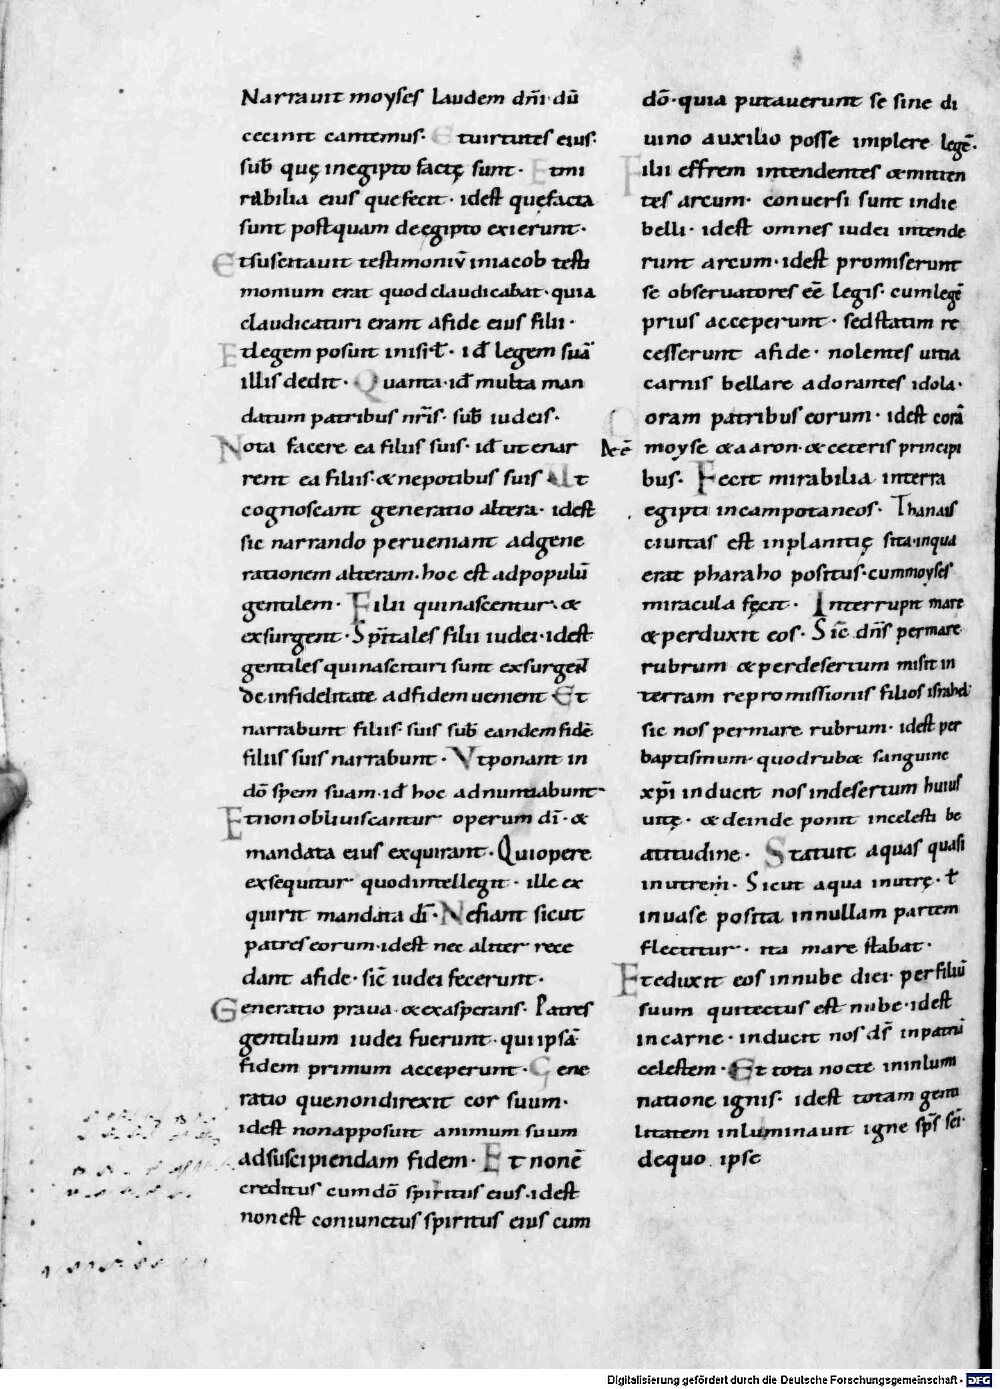 Narrauit moyses laudem dñi dū
cecinit cantemus· Et uirtutes eius·
sub̄ quę inegipto factę sunt· Et mi
rabilia eius quefecit· idest quęfacta
sunt postquam deegipto exierunt·
Etsuscitauit testimoniū iniacob testi
monium erat quod claudicabat· quia
claudicaturi erant afide eius filii·
Etlegem posuit inisrł· id̄ legem suā
illis dedit· Quanta· id̄ multa man
datum patribus nr̄is· sub̄ iudeis·
Nota facere ea filiis suis· id̄ utenar
rent ea filiis· & nepotibus suis Ut
cognoscant generatio altera· idest
sic narrando perueniant adgene
rationem alteram· hoc est adpopulū
gentilem· Filii quinascentur· &
exsurgent· Sp̄itales filii iudei· idest
gentiles quinascituri sunt exsurgent
deinfidelitate adfidem uenient Et
narrabunt filiis suis sub̄ eandem fidē
filiis suis narrabunt· Vtponant in
dō spem suam· id̄ hoc adnuntiabunt
Etnon obliuiscantur operum di̅· &
mandata eius exquirant· Quiopere
exsequitur quodintellegit· ille ex
quirit mandata di̅· Nefiant sicut
patres eorum· idest nec aliter rece
dant afide· sic̄ iudei fecerunt·
Generatio praua· & exasperans· Patres
gentilium iudei fuerunt· qui ipsā
fidem primum acceperunt· Gene
ratio quenondirexit cor suum·
idest nonapposuit animum suum
adsuscipiendam fidem· Et nonē
creditus cumdō spiritus eius· idest
nonest coniunctus spiritus eius cum
dō· quia putauerunt se sine di
uino auxilio posse implere legē·
Filii effrem intendentes & mitten
tes arcum· conuersi sunt indie
belli· idest omnes iudei intende
runt arcum· idest promiserunt
se obseruatores eē legis· cumlegē
prius acceperunt· sedstatim re
cesserunt afide· nolentes uitia
carnis bellare adorantes idola·
Coram patribus eorum· idest corā
moyse & aaron· & ceteris principi
bus· Fecit mirabilia interra
egipti incampotaneos· Thanais
ciuitas est inplanitię sita· inqua
erat pharaho positus· cummoyses
miracula fecit· Interrupit mare
& perduxit eos· Sic̄ dn̄s permare
rubrum & perdesertum misit in
terram repromissionis filios israhel·
sic nos permare rubrum· idest per
baptismum· quodrubᷓ sanguine
xp̄i inducit nos indesertum huius
uitę· & deinde ponit incelesti be
atitudine· Statuit aquas quasi
inutrem· Sicut aqua inutrę· ł
inuase posita innullam partem
flectitur· ita mare stabat·
Eteduxit eos innube diei· perfiliū
suum quitectus est nube· idest
incarne· inducit nos ds̄ inpatriā
celestem· Et tota nocte ininlumi
natione ignis· idest totam genti
litatem inluminauit igne sp̄s sc̄i·
dequo ipse
Digitalisierung gefördert durch die Deutsche Forschungsgemeinschaft - DFG